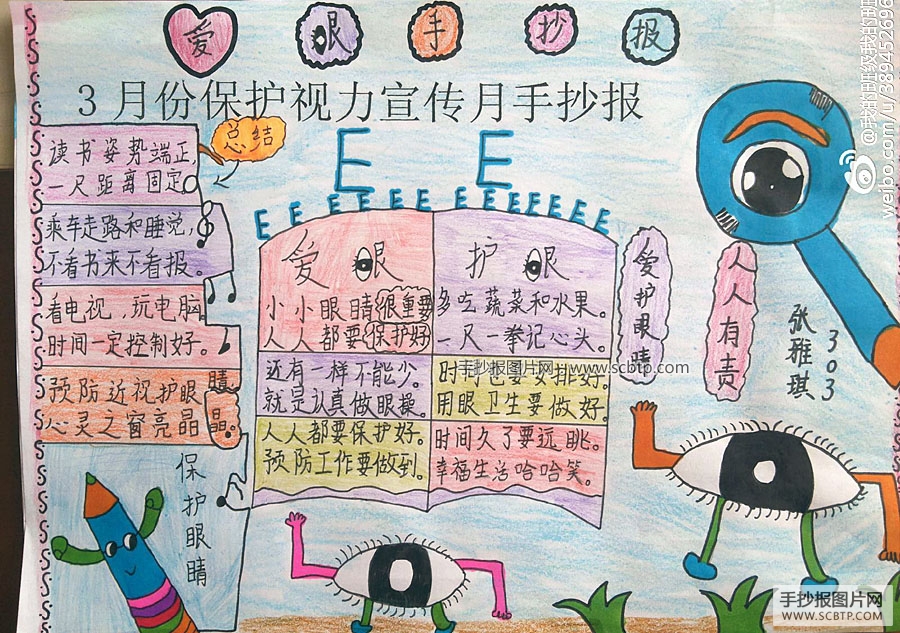 爱眼手抄报
3月份保护视力宣传月手抄报
总结
读书姿势端正,
一尺距离固定。
乘车走路和睡觉,
不看书来不看报。
看电视,玩电脑
时间一定控制好。
预防近视护眼睛
心灵之窗亮晶晶。
保护眼睛
E E
E E E E E E E E E E E E E E
爱眼
小小眼睛很重要
人人都要保护好
还有一样不能少。
就是认真做眼操。
人人都要保护好。
预防工作要做到。
护眼
多吃蔬菜和水果。
一尺一拳记心头。
也要安排好。
用眼卫生要做好。
时间久了要远眺。
幸福生活哈哈笑。
爱护眼睛
人人有责
303
张雅琪
手抄报图片网 www.scbtp.com
@我的班级我的班
weibo.com/u/3894526960
手抄报图片网
WWW.SCBTP.COM